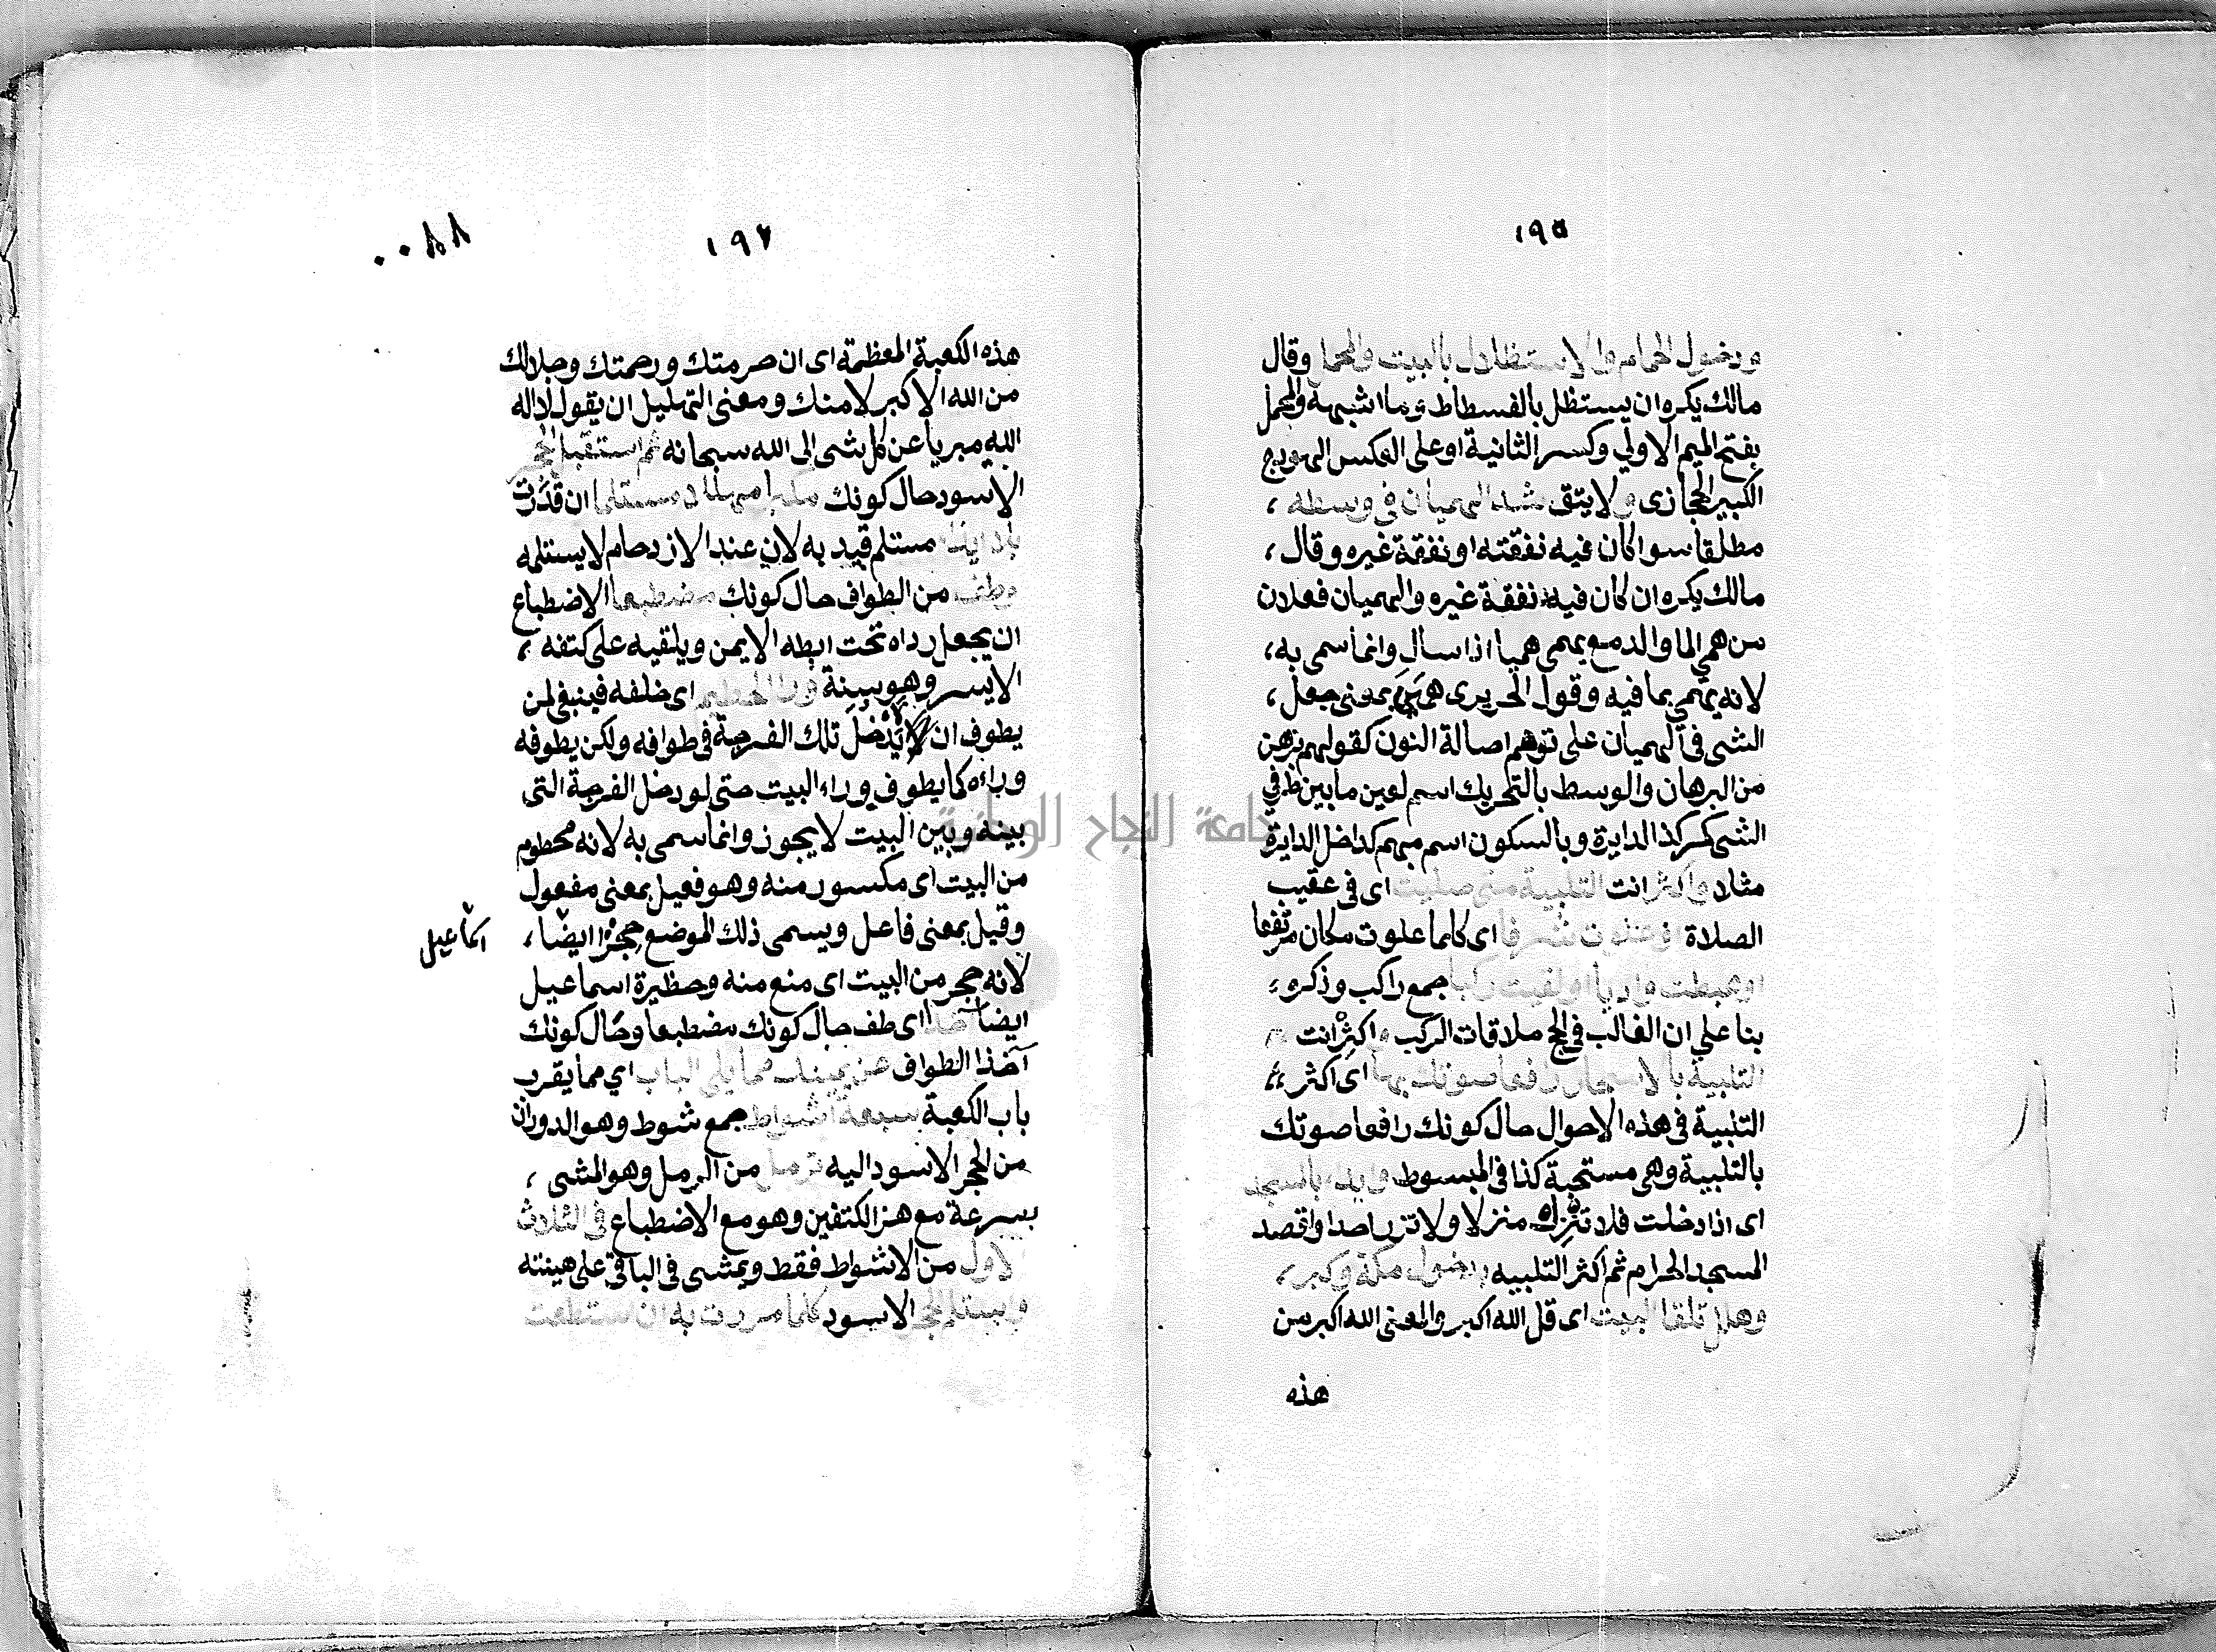 ١٩٥
ودخول الحمام والاستظلال بالبيت والمحمل وقال
مالك يكره ان يستظل بالفسطاط وما اشبهه والمحمل
بفتح الميم الاولي وكسر الثانية او على العكس الهودج
الكبير الحجازى ولا يتق شد الهميان في وسطه ،
مطلقا سوا كان فيه نفقته او نفقة غيره وقال ،
مالك يكره ان كان فيه نفقة غيره والهميان فعلان
من همي الما والدمع يهمى هميا اذا سال وانما سمى به ،
لانه يهمي بما فيه وقول الحريرى همين بمعنى جعل ،
الشى فى الهميان على توهم اصالة النون كقولهم برهن
من البرهان والوسط بالتحريك اسم لعين ما بين طرفي
الشى كمركز الدايرة وبالسكون اسم مبهم كداخل الدايرة
مثلا واكثر انت التلبية متى صليت اى فى عقيب
الصلاة او علوت شرفا اى كلما علوت مكان مرتفعا
او هبطت واديا او لقيت ركبا جمع راكب وذكره ،
بنا علي ان الغالب فى الحج ملاقات الركب واكثر انت
التلبية بالاسحار رافعا صوتك بها اى اكثر ،،
التلبية فى هذه الاحوال حال كونك رافعا صوتك
بالتلبية وهى مستحبة كذا فى المبسوط وابدا بالمسجد
اى اذا دخلت فلا تنزل منزلا ولا تزر احدا واقصد
المسجد الحرام ثم اكثر التلبيه بدخول مكة وكبر ،
وهلل تلقا البيت اى قل الله اكبر والمعنى الله اكبر من
هذه
١٩٦
٠٠٨٨
هذه الكعبة المعظمة اى ان حرمتك ورحمتك وجلالك
من الله الاكبر لا منك ومعنى التهليل ان يقول لا اله
الله مبريا عن كل شى الى الله سبحانه ثم استقبل الحجر
الاسود حال كونك مكبرا مهللا مستلما ان قدرت
بلا ايذا مستلم قيد به لان عند الازدحام لا يستلمه
وطف من الطواف حال كونك مضطبعا الاضطباع
ان يجعل رداه تحت ابطه الايمن ويلقيه على كتفه ،
الايسر وهو سنة ورا الحطيم اى خلفه فينبغى لمن
يطوف ان لا يدخل تلك الفرجة فى طوافه ولكن يطوفه
وراه كما يطوف وراء البيت حتى لو دخل الفرجة التى
بينه وبين البيت لا يجوز وانما سمى به لانه محطوم
من البيت اى مكسور منه وهو فعيل بمعنى مفعول
وقيل بمعنى فاعل ويسمى ذلك الموضع حجرا ايضا ،
اسماعيل
لانه حجر من البيت اى منع منه وحظيرة اسماعيل
ايضا آخذا اى طف حال كونك مضطبعا وحال كونك
آخذا الطواف عن يمينك مما يلى الباب اي مما يقرب
باب الكعبة سبعة اشواط جمع شوط وهو الدوران
من الحجر الاسود اليه ترمل من الرمل وهو المشى ،
بسرعة مع هز الكتفين وهو مع الاضطباع فى الثلاث
الاول من الاشواط فقط ويمشى فى الباقى على هينته
واستلم الحجر الاسود كلما مررت به ان استطعت
جامعة النجاح الوطنية